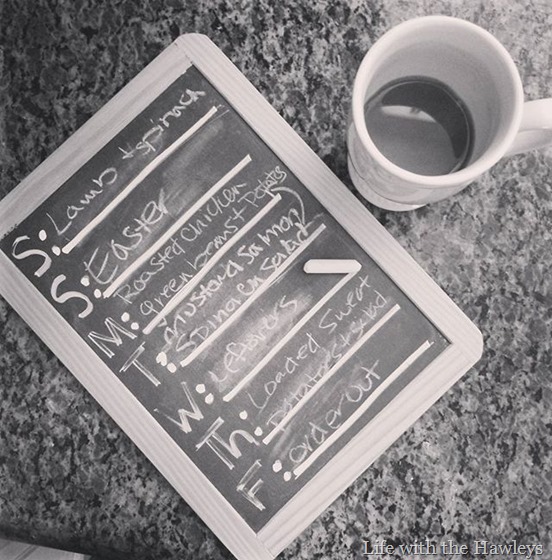 S: Lamb + spinach
S: Easter
M: Roasted Chicken
green beans + Potatoes
T: Mustard Salmon
Spinach Salad
W: Leftovers
Th: Loaded Sweet
potatoes + salad
F: order out
Life with the Hawleys